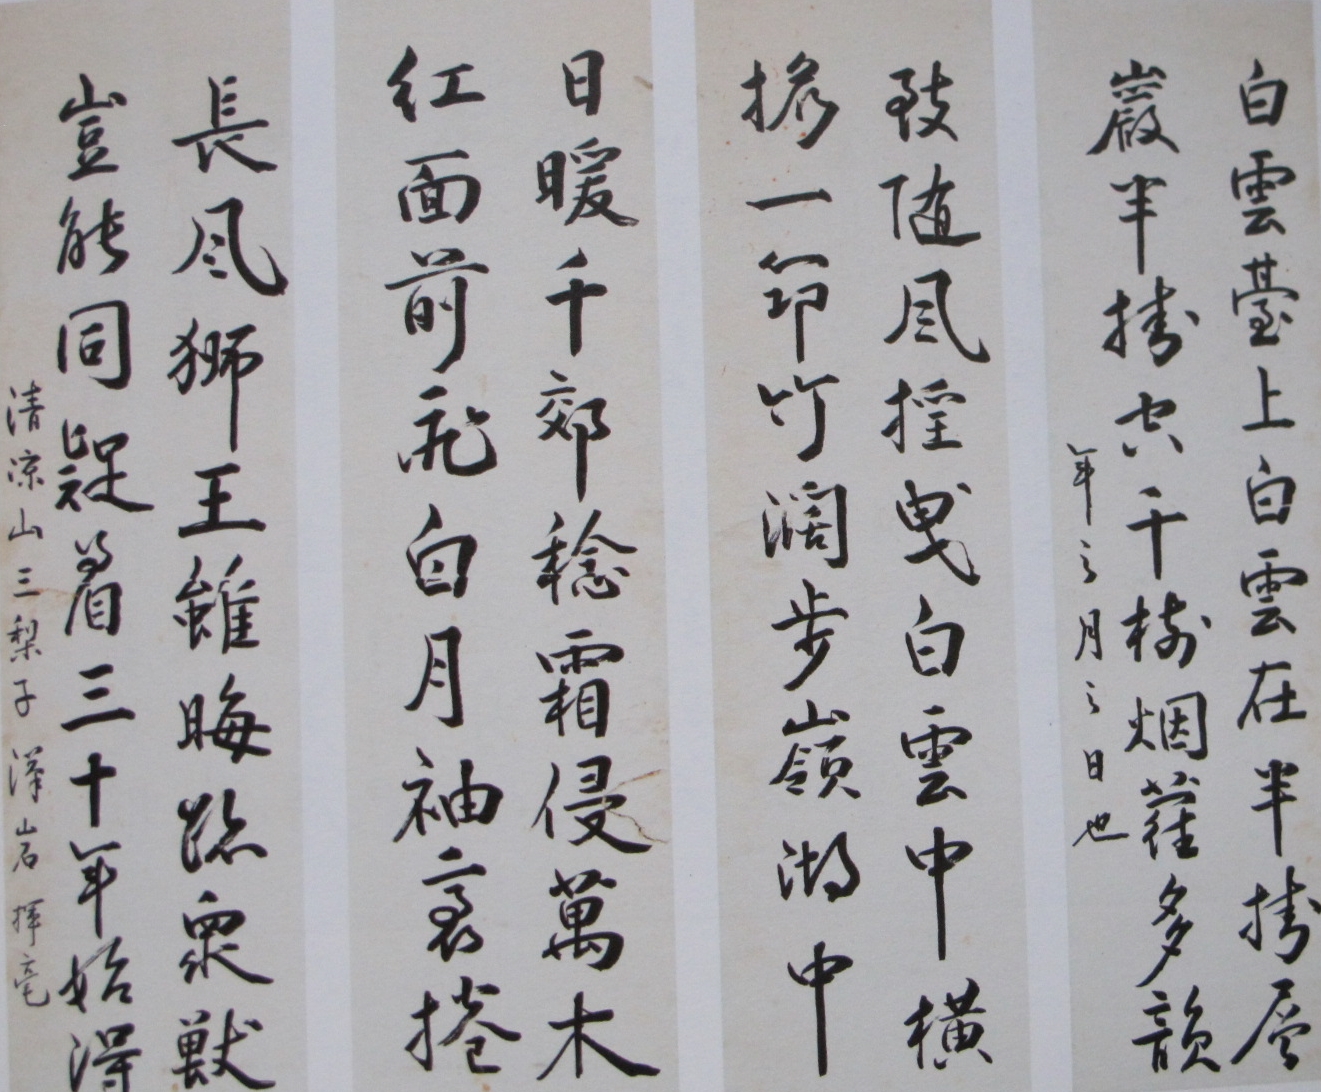 白雲臺上白雲在半掛層
巖半掛空千樹烟蘿多韻
年之月之日也
致随风摇曳白雲中横
擔一筇竹濶步嶺湖中
日暖千郊稔霜侵萬木
红面前飛白月袖裏捲
長风獅王雖晦跡衆獣
豈能同疑着三十年始得
清凉山三梨子漢岩揮毫